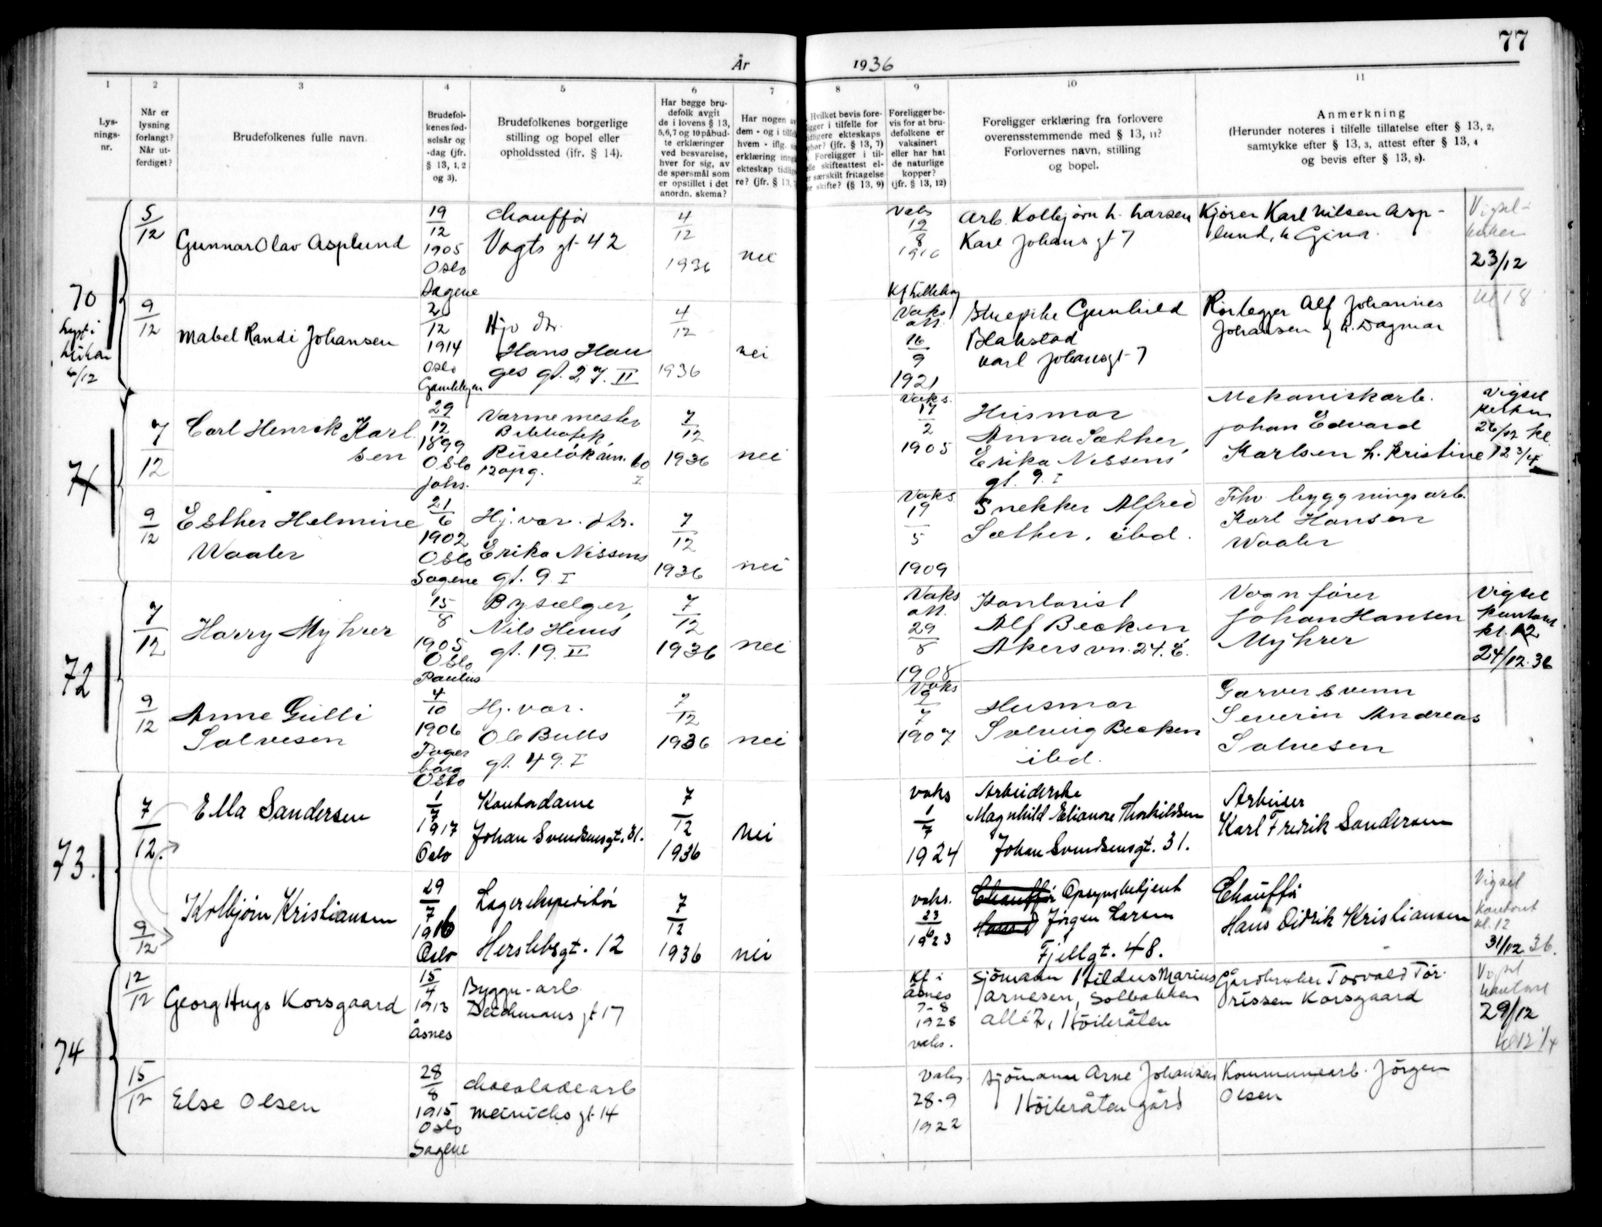 77
År 1936
1
2
3
4
5
6
7
8
9
10
11
Lys-
nings-
nr.
Når er
lysning
forlangt?
Når ut-
ferdiget?
Brudefolkenes fulle navn.
Brudefol-
kenes fød-
selsår og
-dag (jfr.
§ 13, 1, 2
og 3).
Brudefolkenes borgerlige
stilling og bopel eller
opholdssted (ifr. § 14).
Har begge bru-
defolk avgit
de i lovens § 13,
5,6,7 og 10 påbud-
te erklæringer
ved besvarelse,
hver for sig, av
de spørsmål som
er opstillet i det
anordn. skema?
Har nogen av
dem - og i
hvem - iflg.
erklæring
ekteskap
re? (jfr. § 13,
Hvilket bevis fore-
i tilfelle for
ekteskaps
(jfr. § 13, 7)
Foreligger i til-
skifteattest el-
særskilt fritagelse
skifte? (§ 13, 9)
Foreligger be-
vis for at bru-
defolkene er
vaksinert
eller har hat
de naturlige
kopper?
(jfr. § 13, 12)
Foreligger erklæring fra forlovere
overensstemmende med § 13, 11?
Forlovernes navn, stilling
og bopel.
Anmerkning
(Herunder noteres i tilfelle tillatelse efter § 13, 2,
samtykke efter § 13, 3, attest efter § 13, 4
og bevis efter § 13, 8).
70
5/12
Gunnar Olav Asplund
19/12
1905
Oslo
Sagene
chauffør
Vogts gt 42
4/12
1936
nei
vaks
19/8
1916
Arb. Kolbjørn L. Larsen
Karl Johans gt 7
Kjører Karl Nilsen Asp-
lund, h Gina.
23/12
9/12
Mabel Randi Johansen
2/12
1914
Oslo
Gamlebyen
Hjv dtr.
Hans Hau
ges gt. 27. II
4/12
1936
nei
Vaks
att.
16/9
1921
Stuepike Gunhild
Blakstad
Karl Johansgt 7
Rørlegger Alf Johannes
Johansen & h. Dagmar
71
7/12
Carl Henrik Karl
sen
29/12
1899
Oslo
Johs.
Varmemester
Ruseløkvn. 60
12 opg. I
7/12
1936
nei
Vaks.
17/2
1905
Husmor
Anna Sæther,
Erika Nissens
gt. 9. I
Mekaniskarb.
Johan Edvard
Karlsen h. Kristine
Vigsel
26/12 kl.
12 3/4
9/12
Esther Helmine
Waaler
21/6
1902
Oslo
Sagene
Hj. var. dtr.
Erika Nissens
gt. 9 I
7/12
1936
nei
Vaks
19/5
1909
Snekker Alfred
Sæther. ibd.
Fhv byggningsarb.
Karl Hansen
Waaler
72
7/12
Harry Myhrer
15/8
1905
Oslo
Paulus
Bysælger,
Nils Huus
gt. 19. II
7/12
1936
nei
Vaks
att.
29/8
1908
Kontorist
Alf Becken
Akersvn. 24. E.
Vognfører
Johan Hansen
Myhrer
Vigsel
kontoret.
kl. 12
24/12. 36
9/12
Anne Gulli
Salvesen
4/10
1906
Fager
borg
Oslo
Hj. var.
Ole Bulls
gt. 49. I
7/12
1936
nei
Vaks
1907
Husmor
Solveig Becken
ibd.
Garversvenn
Severin Andreas
Salvesen
73.
7/12.
Ella Sandersen
1/7
1917
Oslo
Kontordame
Johan Svendsensgt. 31.
7/12
1936
nei
vaks
1/7
1924
Arbeiderske
Magnhild Elianore Thorkildsen
Johan Svendsensgt. 31.
Arbeider
Karl Fredrik Sandersen
9/12
Kolbjørn Kristiansen
29/7
1916
Oslo
Lagerekspeditør
Herslebsgt. 12
7/12
1936
nei
vaks.
23/6
1923
Chauffør Opsynsbetjent
Jørgen Larsen
Fjellgt. 48.
Chauffør
Hans Didrik Kristiansen
Vigsel
kontoret
kl. 12
31/12 36.
74
12/12
Georg Hugo Korsgaard
15/4
1913
Åsnes
Byggn-arb
Deichmans gt 17
Kf i
Åsnes
7-8
1928
vaks.
Sjømann Hildus Marius
Arnesen, Solbakken
allé 2, Høibråten
Gårdbruker Torvald Tor-
rissen Korsgaard
Vigsel
kontoret
29/12
15/12
Else Olsen
28/8
1915
Oslo
Sagene
chocoladearb
Meinichs gt 14
Vaks
28-9
1922
Sjømann Arne Johansen
Høibråten gård
Kommunearb. Jørgen
Olsen